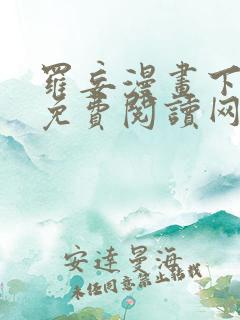 羅妄漫畫下
免費閱讀网
安達曼海
未经同意禁止转载